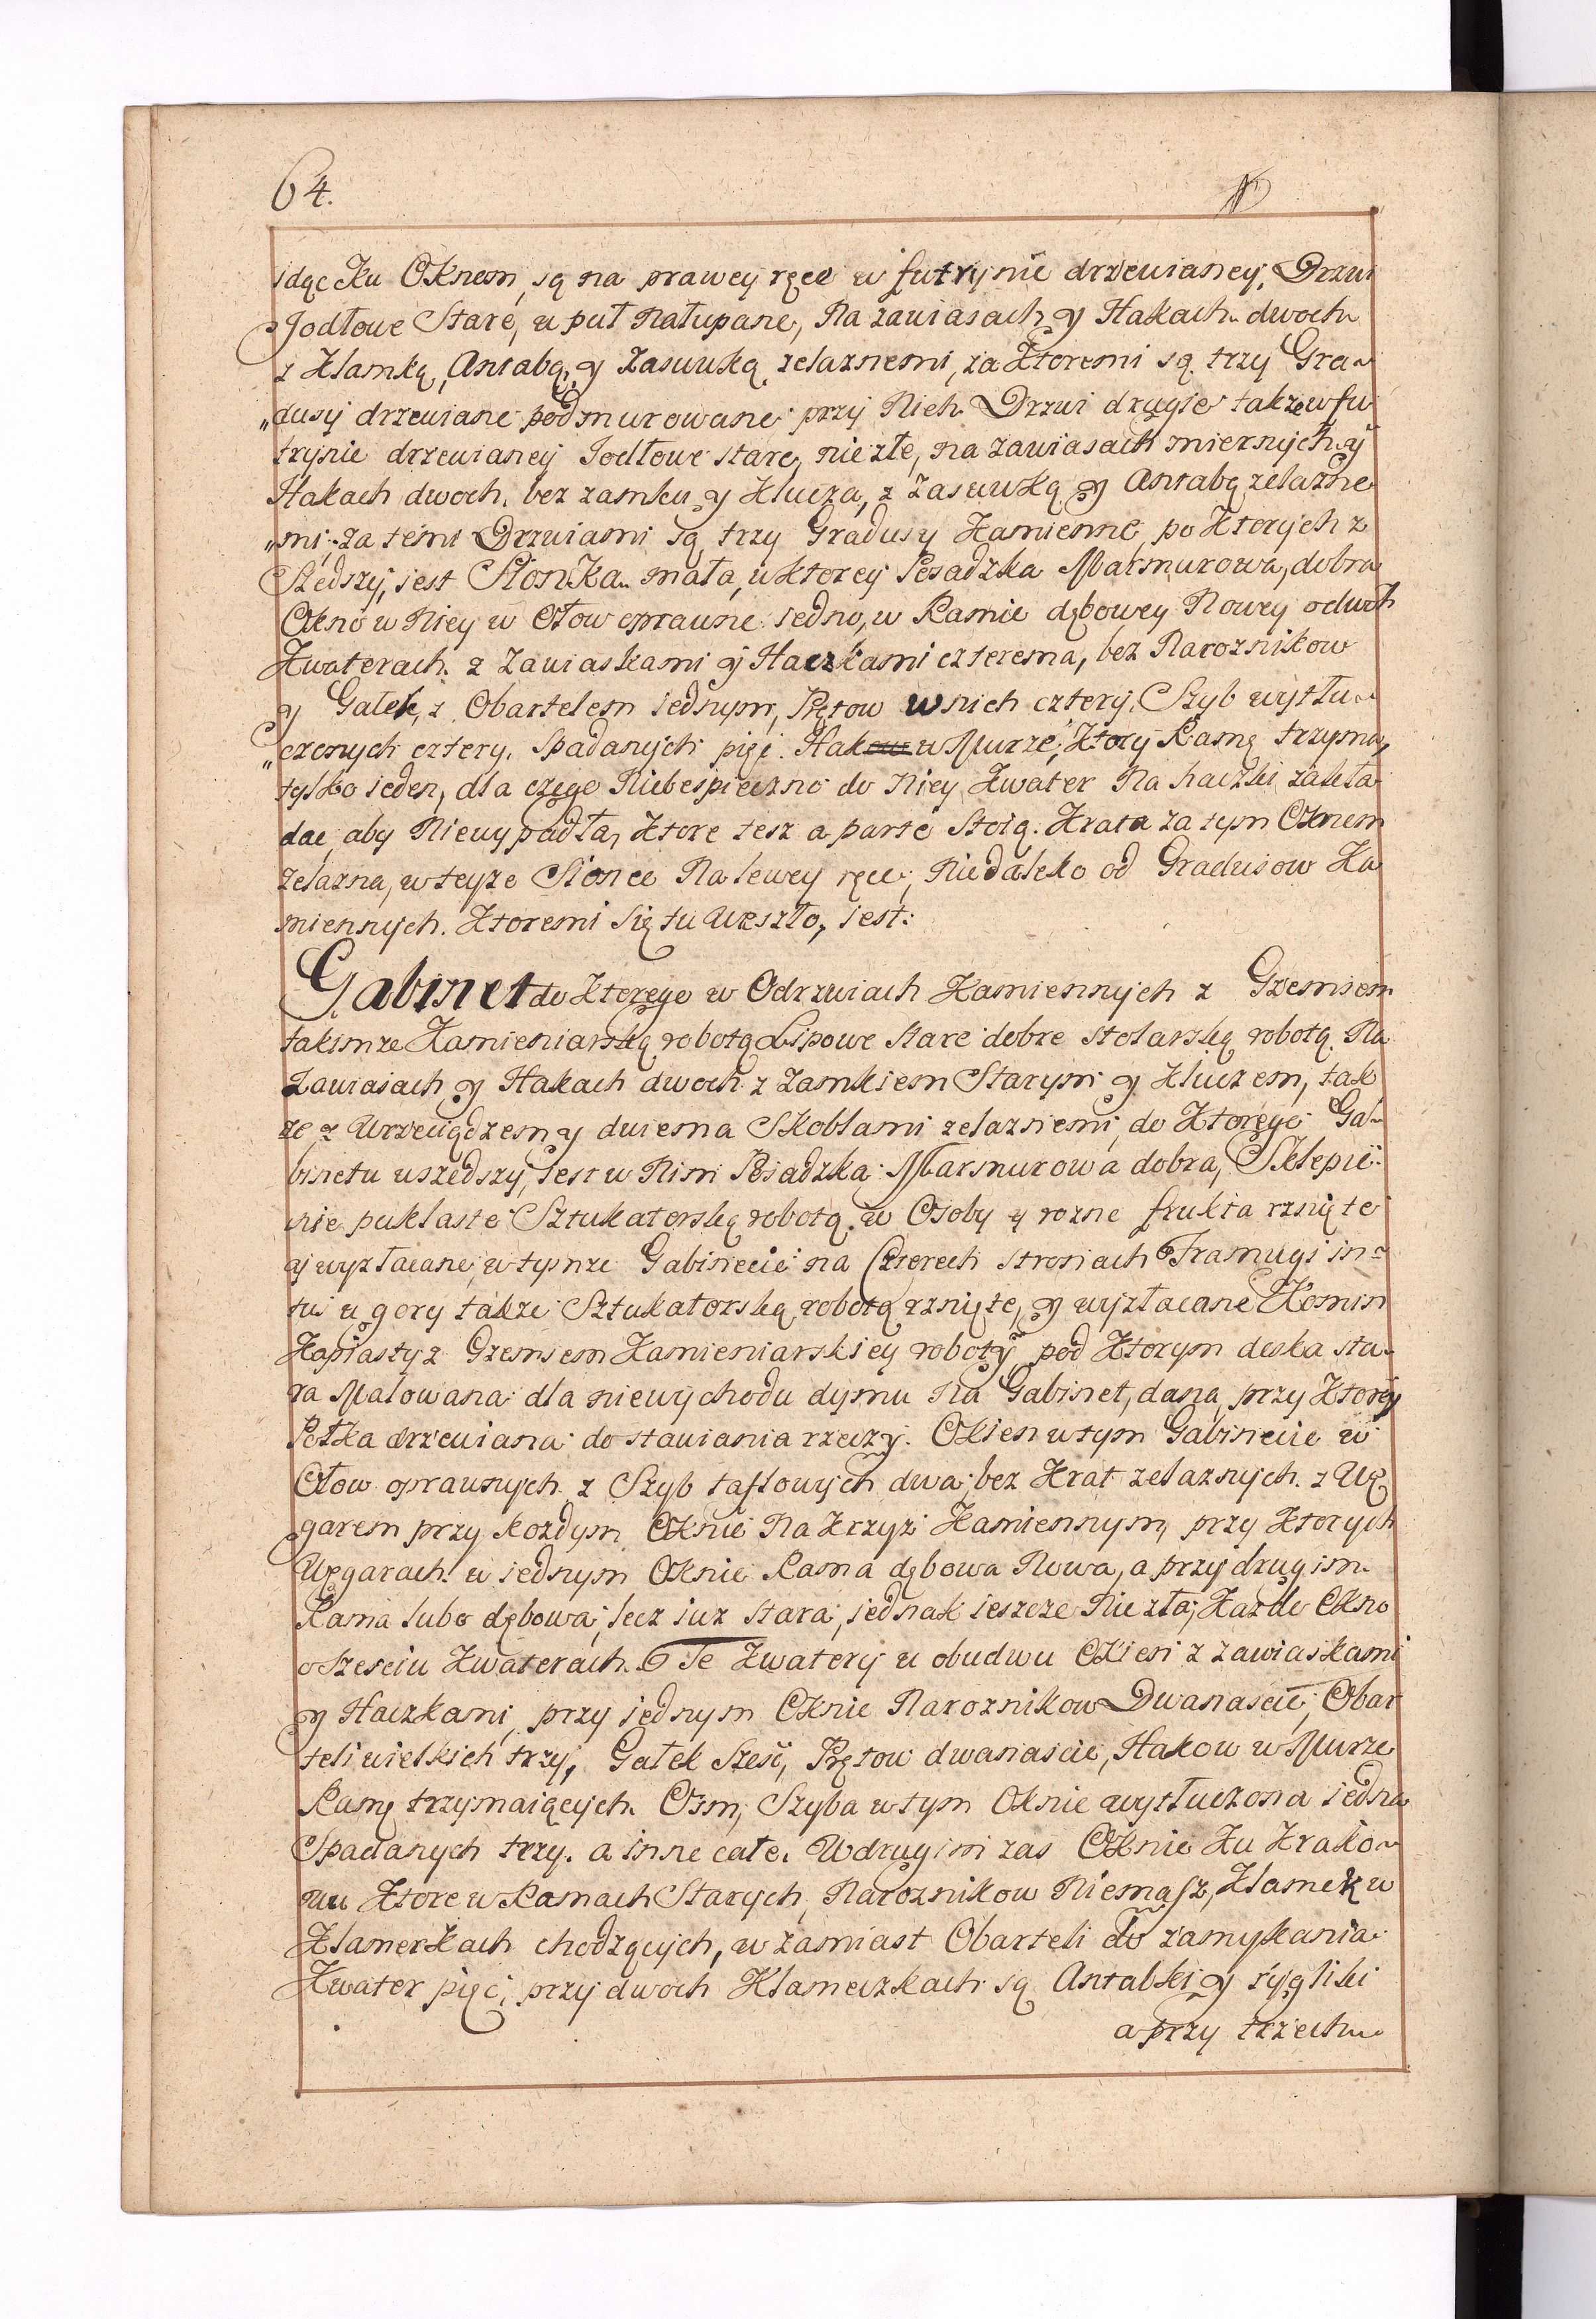 64.
idąc Ku Oknom, są na prawey ręce w futrynie drzewianey, Drzwi
Jodłowe Stare, w puł Rałupane, Na zawiasach y Hakach dwoch
z Klamką, Antabą, y Zasuwką zelaznemi, za Ktoremi są trzy Gra-
„dusy drzewiane podmurowane przy Nich Drzwi drugie także w fu
trynie drzewianey Jodłowe stare, nie złe, na zawiasach miernych y
Hakach dwoch, bez zamku y Klucza, z Zasuwką y Antabą zelazne
„mi, za temi Drzwiami są trzy Gradusy Kamienne, po Ktorych z
Szedszy, iest Sionka mała, w ktorey Posadzka Marmurowa, dobra
Okno w Niey w Ołow oprawne iedno, w Ramie dębowey Nowey o dwoch
Kwaterach z Zawiaskami y Haczkami czterema, bez Naroznikow
y Gałek, z Obartelem iednym, Prętow w nich cztery, Szyb wytłu-
„czonych cztery, Spadanych pięć. Hak w Murze, Ktory Ramę trzyma,
tylko ieden, dla czego Niebespieczno do Niey Kwater Na haczki zakła
dac, aby Niewypadła, Ktore tesz a parte Stoią. Krata za tym Oknem
zelazna, w teyze Sionce Na lewey ręce, Niedaleko od Gradusow Ka
miennych. Ktoremi się tu weszło, iest:
Gabinet do Ktorego w Odrzwiach Kamiennych z Gzemsem
takimze Kamieniarską robotą Lipowe stare dobre stolarską robotą Na
Zawiasach y Hakach dwoch z Zamkiem Starym y Kluczem, tak
ze z Wrzeciądzem y dwiema Skoblami zelaznemi, do Ktorego Ga-
binetu wszedszy, iest w Nim Posadzka Marmurowa dobra, Sklepie-
nie puklaste Sztukatorską robotą w Osoby y rozne frukta rznięte
y wyzłacane, w tymze Gabinecie na Czterech stronach Framugi in-
tu u gory takze Sztukatorską robotą rznięte, y wyzłacane Komin
Kapiasty z Gzemsem Kamieniarskiey roboty, pod Ktorym deska sta-
ra Malowana dla niewychodu dymu na Gabinet, dana, przy Ktorey
Połka drzewiana do stawiania rzeczy. Okien w tym Gabinecie w
Ołow oprawnych z Szyb taflowych dwa, bez Krat zelaznych z Wę
garem przy kozdym Oknie Na Krzyz Kamiennym, przy Ktorych
Węgarach w iednym Oknie Rama dębowa Nowa, a przy drugim
Rama lubo dębowa, lecz iuz stara, iednak ieszcze Nie zła, Kazde Okno
o Szesciu Kwaterach. Te Kwatery u obudwu Okien z zawiaskami
y Haczkami, przy iednym Oknie Naroznikow Dwanascie, Obar
teli wielkich trzy, Gałek Szesć, Prętow dwanascie, Hakow w Murze
Ramę trzymaiących Osm, Szyba w tym Oknie wytłuczona iedna
Spadanych trzy. a inne całe. W drugim zas Oknie Ku Krako-
wu Ktore w Ramach Starych, Naroznikow Niemasz, Klamek w
Klamerkach chodzących, w zamiast Obarteli do zamykania
Kwater pięć, przy dwoch Klameczkach są Antabki y rygliki
a przy trzech